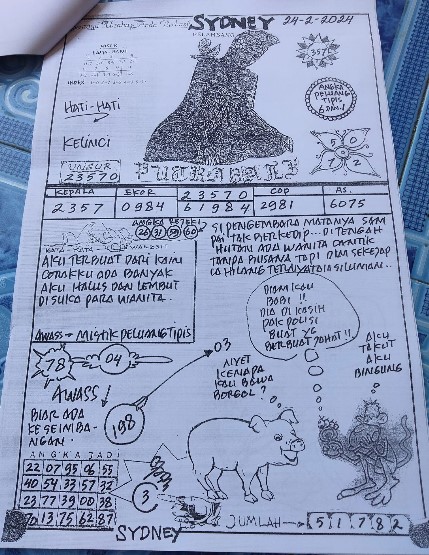 SYDNEY
24-2-2024
PALEMBANG
357
ANGKA
PELUANG
TIPIS
6 DM!
HATI-HATI
KELINCI
UNGGUR
23570
5 0
1 2
KEPALA
EKOR
23570
COP
AS.
2357
0984
61984
2981
6075
ANGKA REJEKI
26 31 59 60
KATA - KATA
AKU TERBUAT DARI KAIN
CORAKKU ADA BANYAK
AKU HALUS DAN LEMBUT
DISUKA PARA WANITA.
AWAS = MISTIK PELUANG TIPIS
SI PENGEMBARA MATANYA SAM
PAI TAK BERKEDIP... DI TENGAH
HUTAN ADA WANITA CANTIK
TANPA BUSANA TAPI DLM SEKEJAP
IA HILANG TERNYATA DIA SILUMAN..
DIAM KAU
BABI !!
DIA DI KASIH
PAK POLISI
BUAT YG
BERBUAT JAHAT !!
78
04
03
AWAS!
BIAR ADA
KESEIMBA-
NGAN.
198
KENAPA
KAU BAWA
BORGOL ?
AKU
TAKUT
AKU
BINGUNG
ANGKA JADI
22 07 95 96 55
40 54 33 57 32
23 77 39 00 38
70 13 75 62 87
3
SYDNEY
JUMLAH → 51782